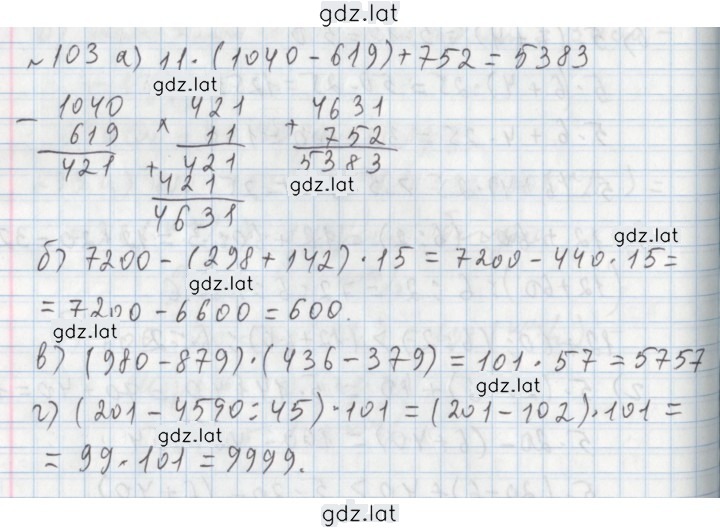 gdz.lat
№103 а) 11·(1040-619)+752=5383
gdz.lat
- 1040
619
421
× 421
11
+ 421
421
4631
+ 4631
752
5383
gdz.lat
gdz.lat
б) 7200-(298+142)·15=7200-440·15=
gdz.lat
=7200-6600=600.
gdz.lat
в) (980-879)·(436-379)=101·57=5757
gdz.lat
г) (201-4590:45)·101=(201-102)·101=
gdz.lat
=99·101=9999.
gdz.lat